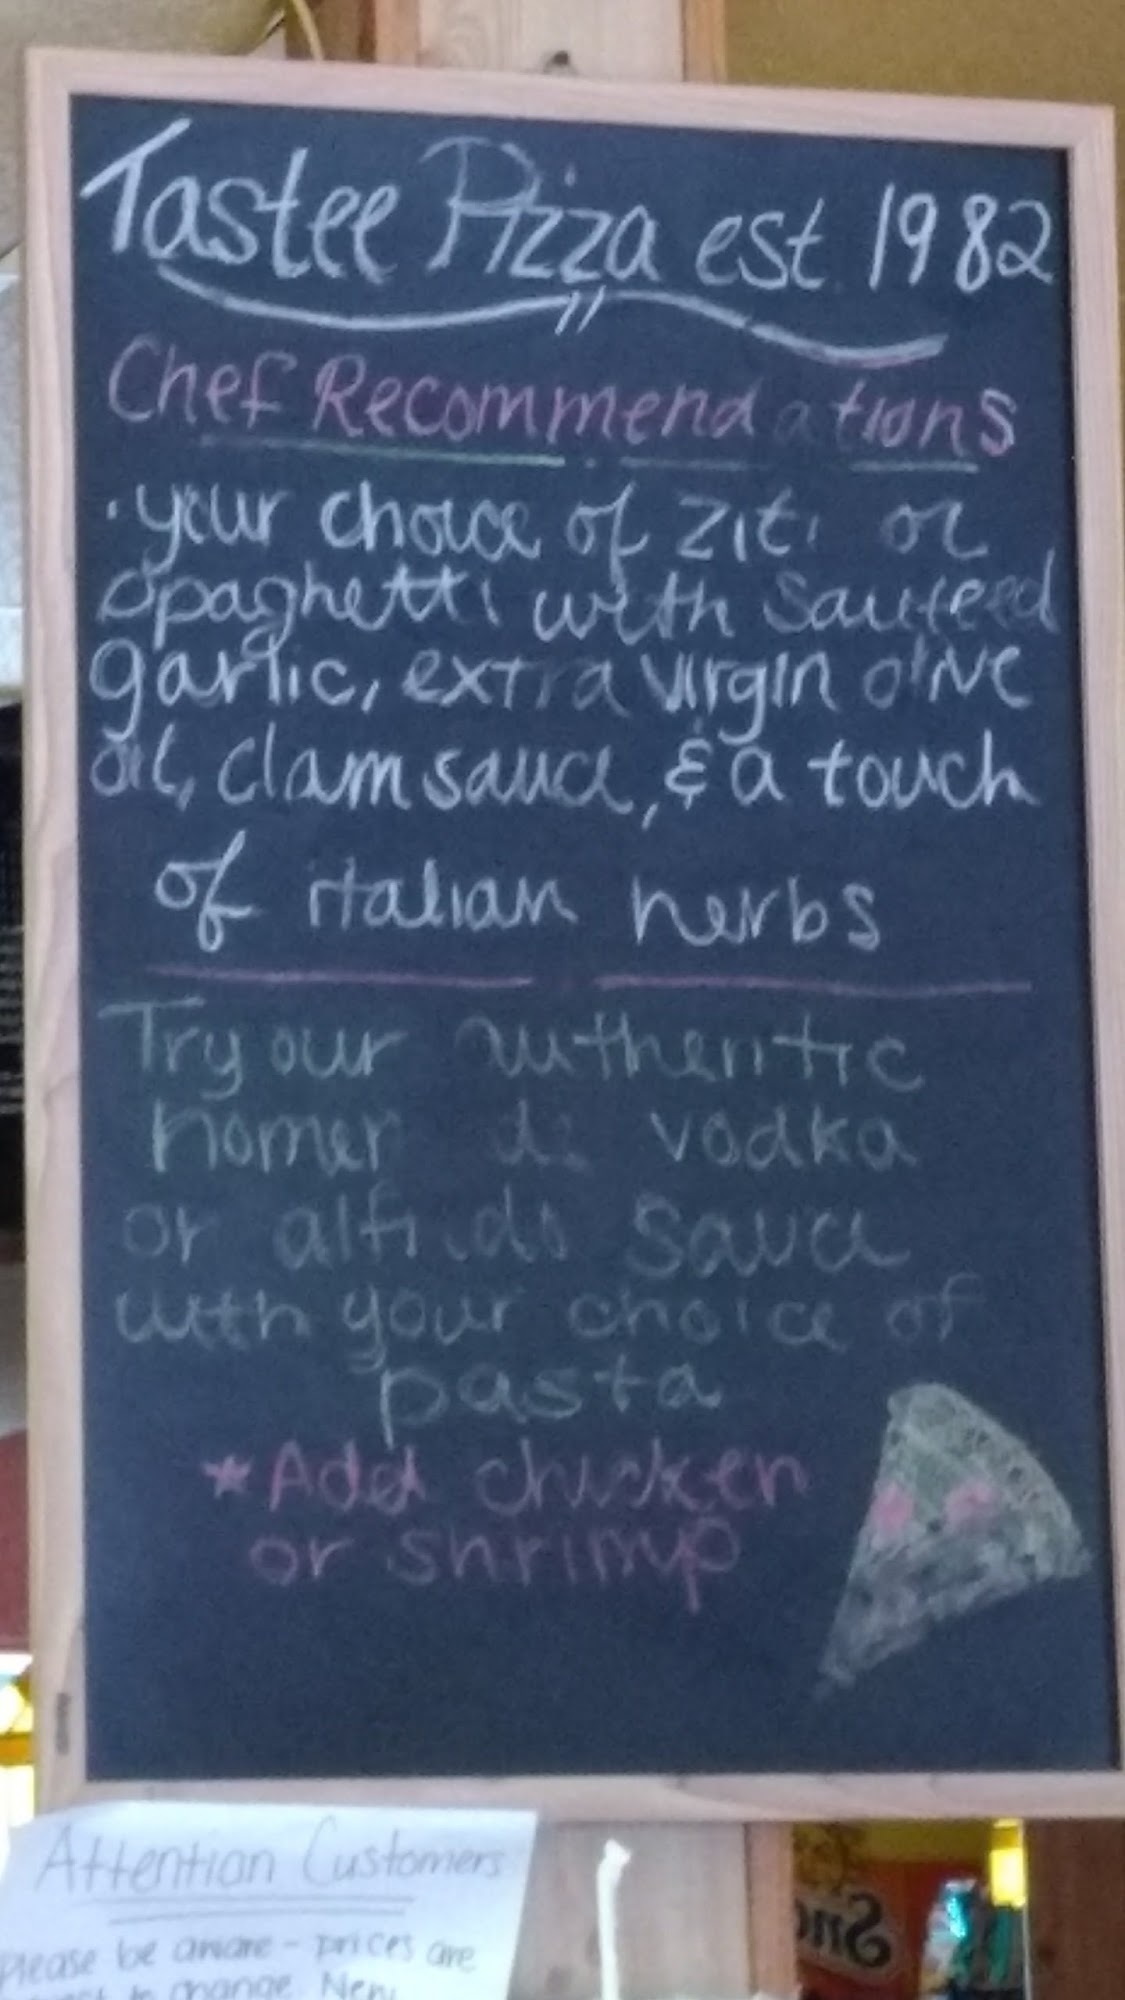 Tastee Pizza est. 1982
Chef Recommendations
· your choice of ziti or
spaghetti with sauteed
garlic, extra virgin olive
oil, clam sauce, & a touch
of italian herbs
Try our authentic
homemade vodka
or alfredo sauce
with your choice of
pasta
*Add chicken
or shrimp
Attention Customers
please be aware - prices are
to change. New